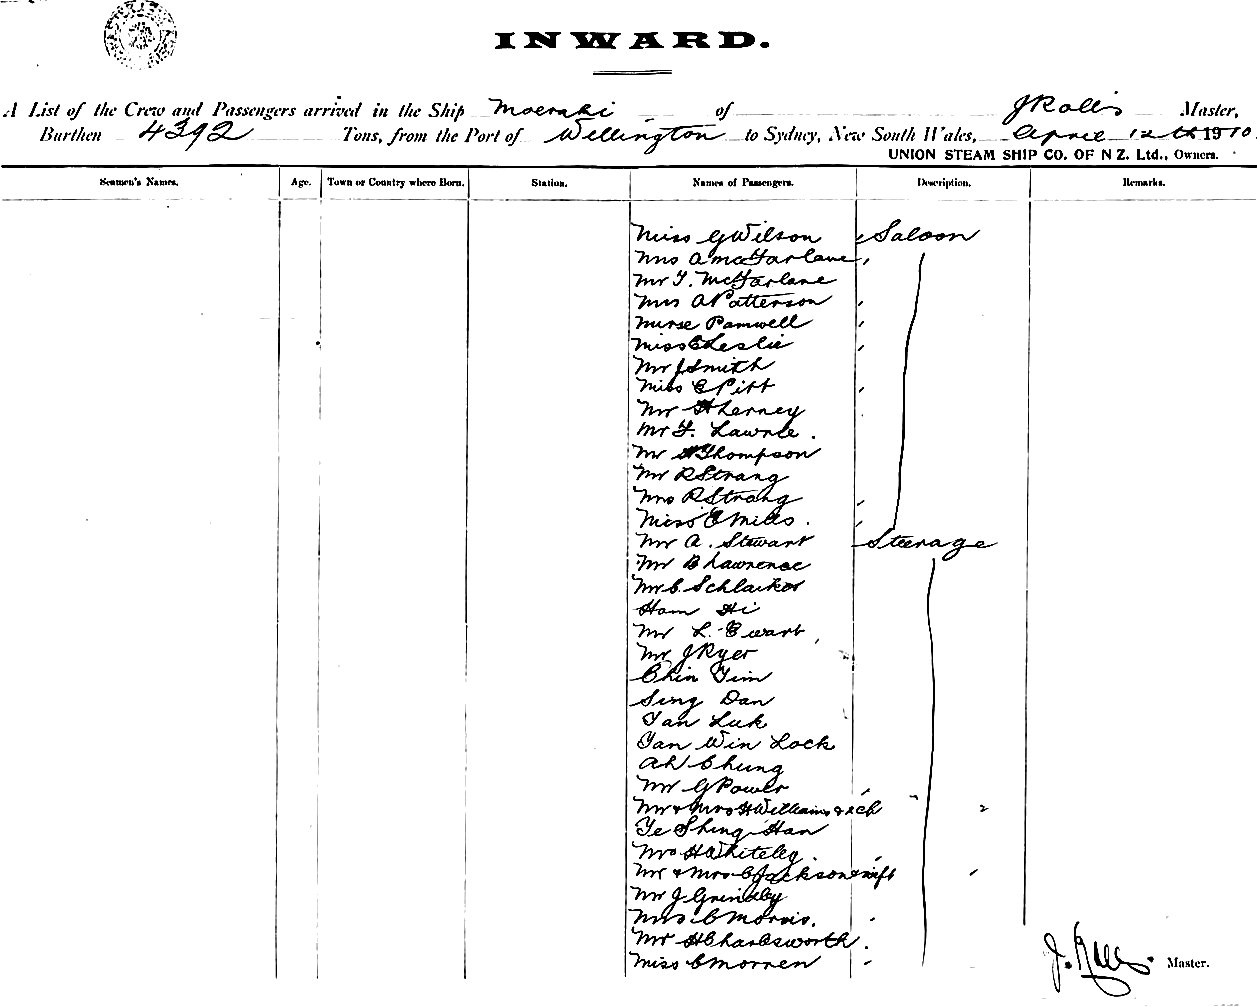 INWARD.
A List of the Crew and Passengers arrived in the Ship Moeraki of J Rolls Master,
Burthen 4392 Tons, from the Port of Wellington to Sydney, New South Wales, April 12th 1910
UNION STEAM SHIP CO. OF N Z. Ltd., Owners.
Seamen's Names. Age. Town or Country where Born. Station. Names of Passengers. Description. Remarks.
Miss G Wilson Saloon
Mrs A McFarlane
Mr T. McFarlane
Mrs A Patterson
Nurse Pamwell
Miss C Leslie
Mr J Smith
Miss E Pitt
Mr H Lerney
Mr F. Lawrie.
Mr Thompson
Mr R Strang
Mrs R Strang
Miss E Mills.
Mr A. Stewart Steerage
Mr B Lawrence
Mr C. Schlaikor
Ham Hi
Mr L. Ewart
Mr J Ryer
Chin Tim
Sing Dan
Yan Luk
Yan Win Lock
Ah Chung
Mr G Power
Mr & Mrs H Williams & ch 2
Ye Shing Han
Mrs H Whiteley.
Mr & Mrs C Jackson & inft
Mr J Grindley
Mrs C Morris.
Mr H Charlesworth.
Miss C Morren
J. Rolls. Master.